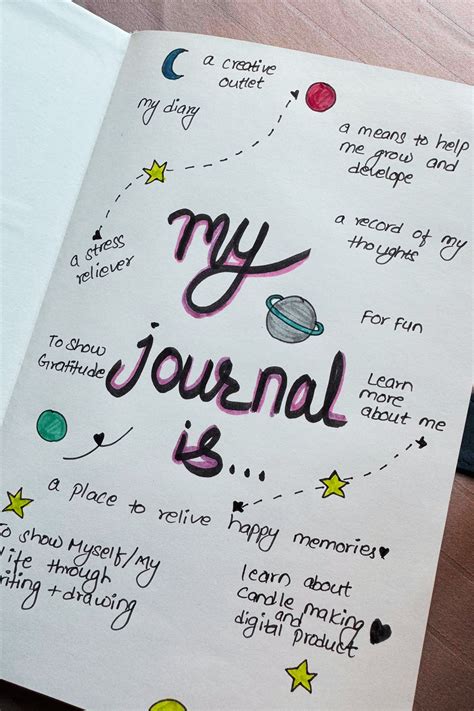 a creative
outlet
my diary
a means to help
me grow and
develope
a stress
reliever
a record of my
thoughts
my
For fun
To show
Gratitude
journal
Learn
more
about me
is...
a place to relive happy memories
To show Myself/My
life through
writing + drawing
learn about
candle making
and
digital product